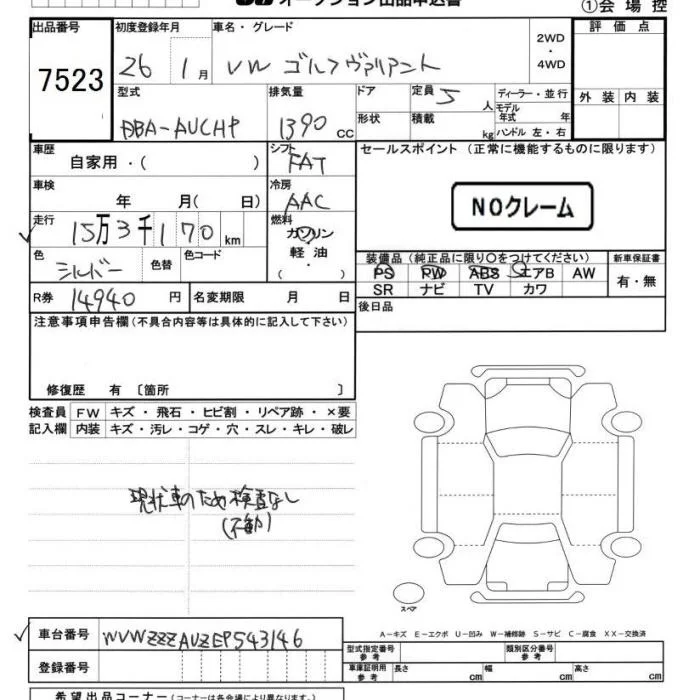 オークション出品申込書
①会場控
出品番号 初度登録年月 車名・グレード 2WD・4WD 評価点
7523 26 1月 VW ゴルフヴァリアント
型式 排気量 ドア 定員 5人 ディーラー・並行 外装 内装
DBA-AUCHP 1390 CC 形状 積載 kg モデル年式 年 ハンドル 左・右
車歴 シフト セールスポイント(正常に機能するものに限ります)
自家用・( ) FAT
車検 冷房
年 月( 日) AAC NOクレーム
走行 燃料
15万3千170km ガソリン
軽油
・( )
色 色替 色コード 装備品(純正品に限り○をつけてください) 新車保証書
シルバー PS PW ABS エアB AW 有・無
R券 14940円 名変期限 月 日 SR ナビ TV カワ
注意事項申告欄(不具合内容等は具体的に記入して下さい) 後日品
修復歴 有〔箇所 〕
検査員 FW キズ・飛石・ヒビ割・リペア跡・×要
記入欄 内装 キズ・汚レ・コゲ・穴・スレ・キレ・破レ
現状車のため検査なし
(不動)
スペア
車台番号 WVWZZZAUZEP543146 A-キズ E-エクボ U-凹み W-補修跡 S-サビ C-腐食 XX-交換済
型式指定番号 参考 類別区分番号 参考
登録番号 車庫証明用 参考 長さ cm 幅 cm 高さ cm
希望出品コーナー(コーナーは各会場により異なります。)